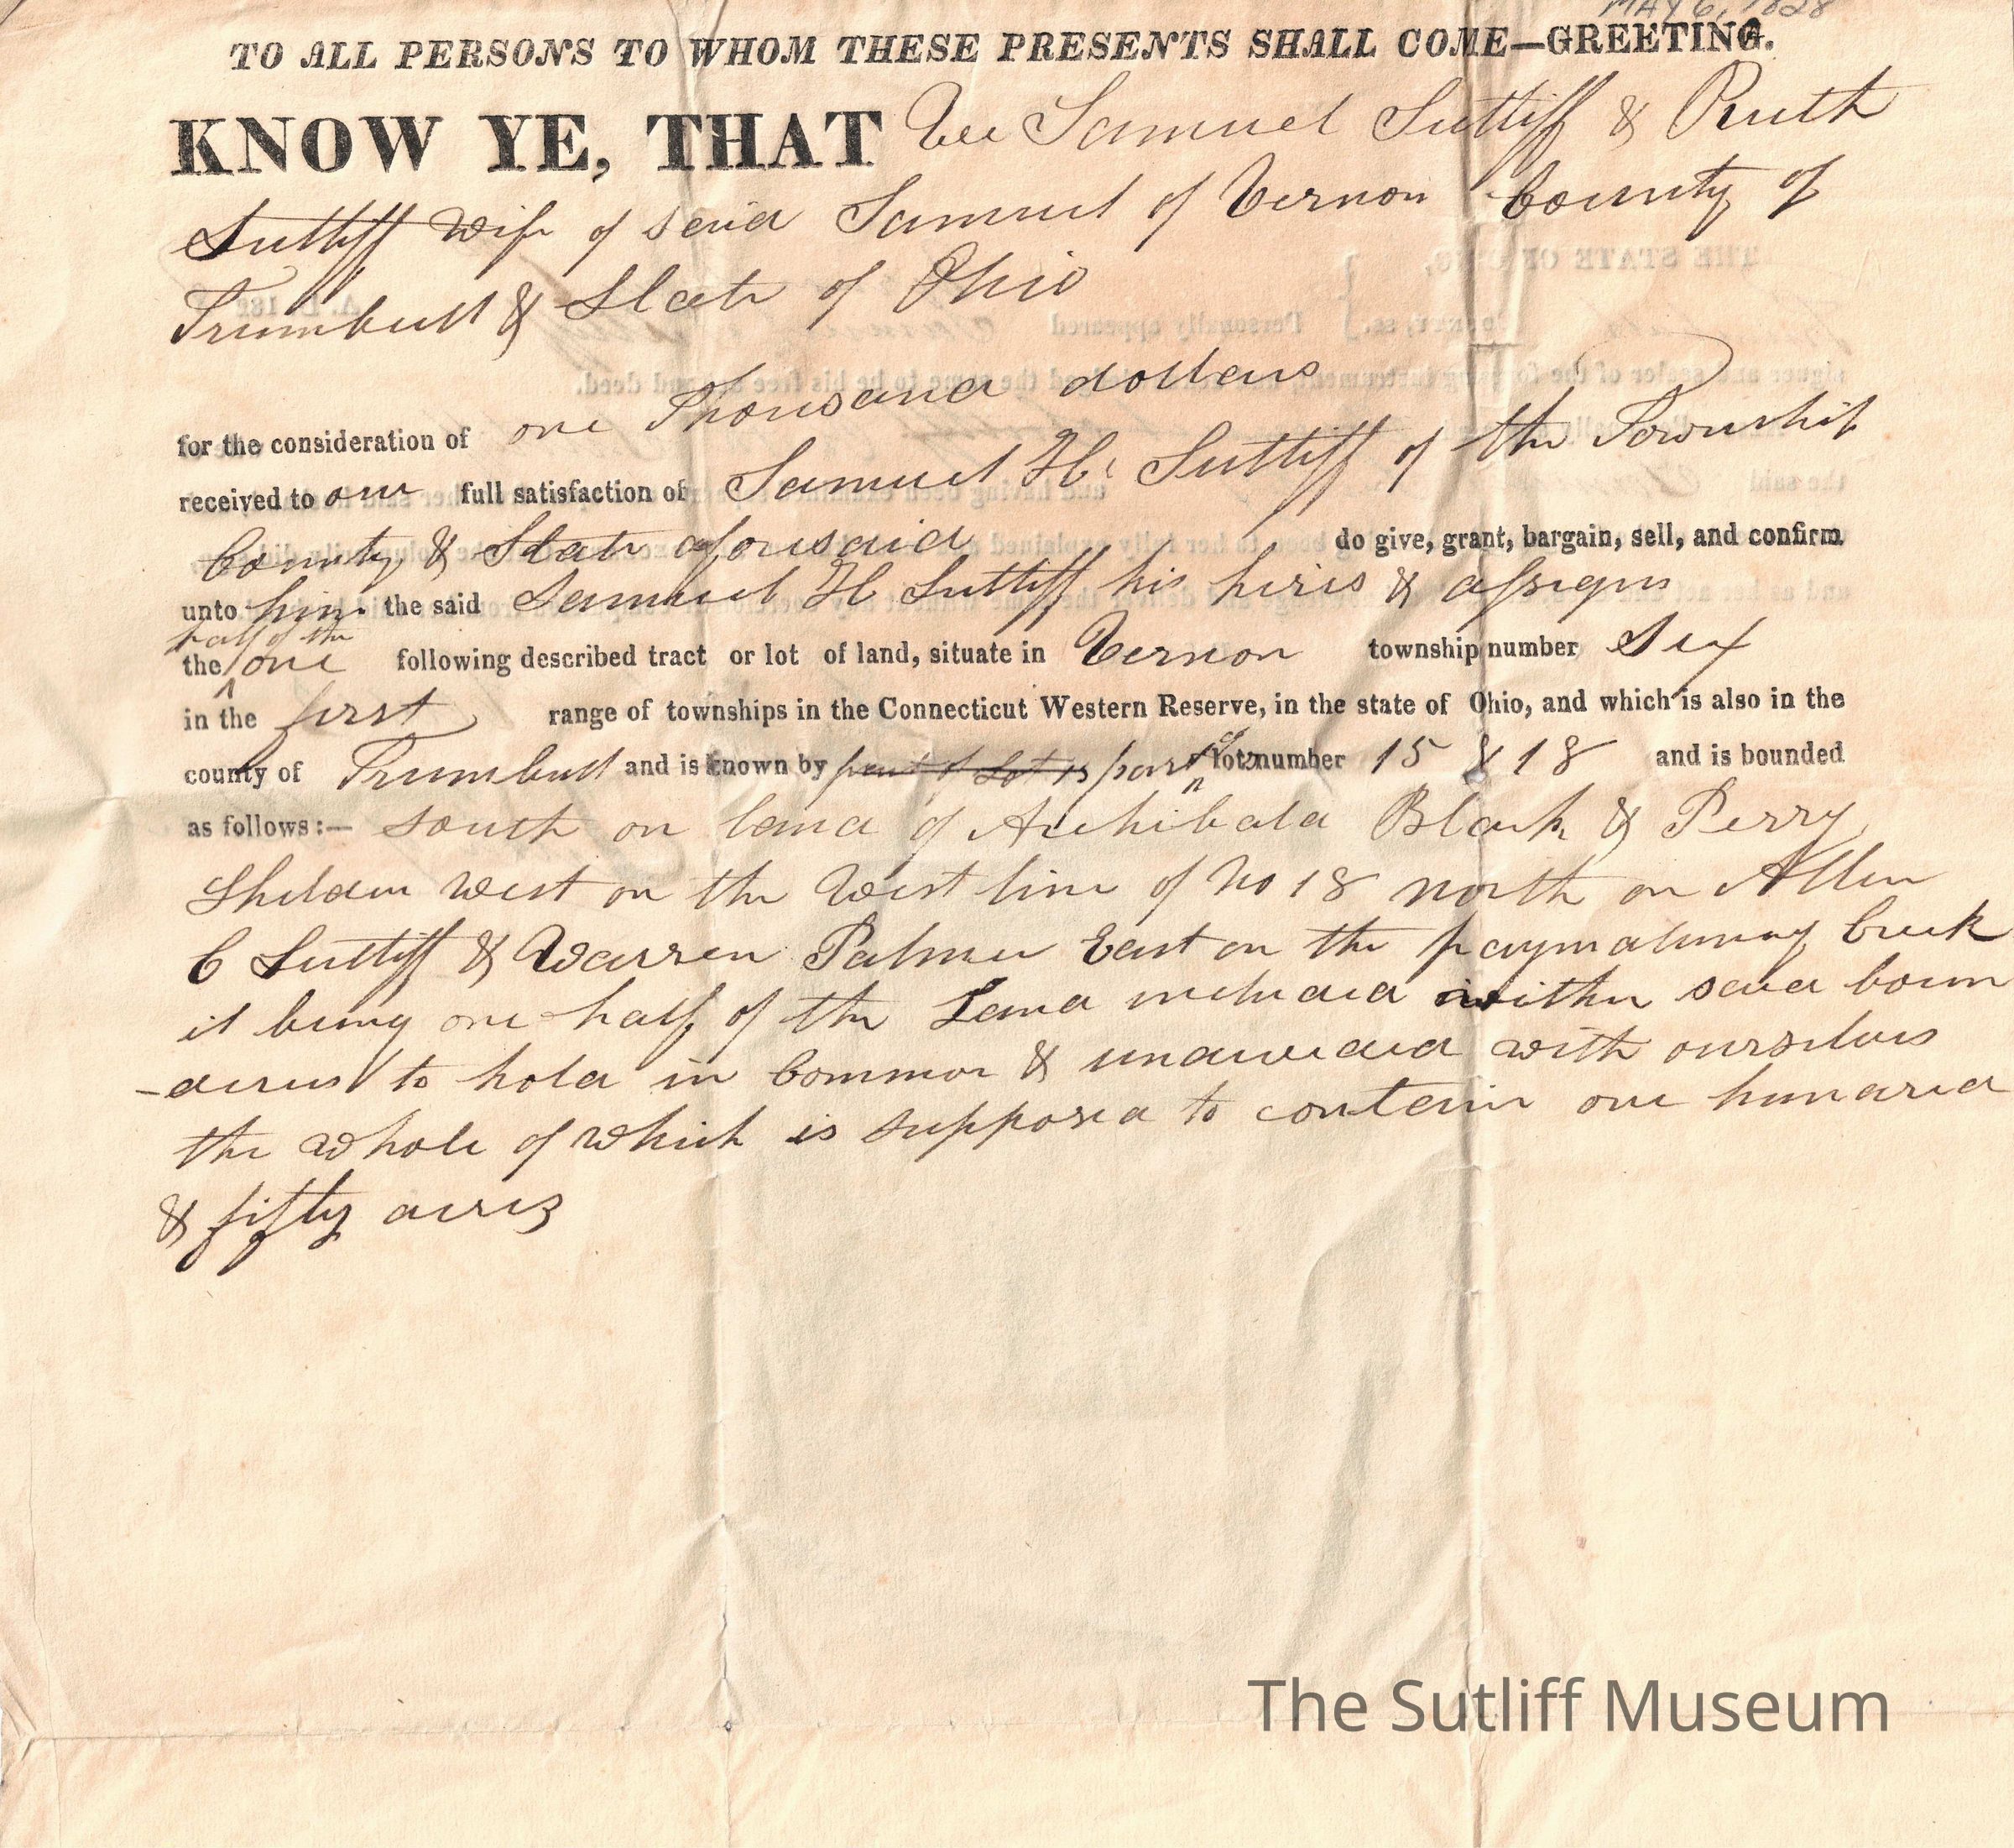 MAY 6, 1828
TO ALL PERSONS TO WHOM THESE PRESENTS SHALL COME—GREETING.
KNOW YE, THAT We Samuel Sutliff & Ruth
Sutliff wife of said Samuel of Vernon County of
Trumbull & State of Ohio
for the consideration of one Thousand dollars
received to our full satisfaction of Samuel H. Sutliff of the Township
County & State aforesaid do give, grant, bargain, sell, and confirm
unto him the said Samuel H Sutliff his hires & assigns
half of the
the one following described tract or lot of land, situate in Vernon township number Six
in the first range of townships in the Connecticut Western Reserve, in the state of Ohio, and which is also in the
county of Trumbull and is known by part of Lot 15 part of lot number 15 & 18 and is bounded
as follows:— south on land of Archibald Black & Perry
Sheldon west on the West line of No 18 north on Allen
C Sutliff & Warren Palmer East on the paymatuning Creek
it being one half of the Land included within said boun
-daries to hold in Common & undivided with ourselves
the whole of which is supposed to contain one hundred
& fifty acres
The Sutliff Museum